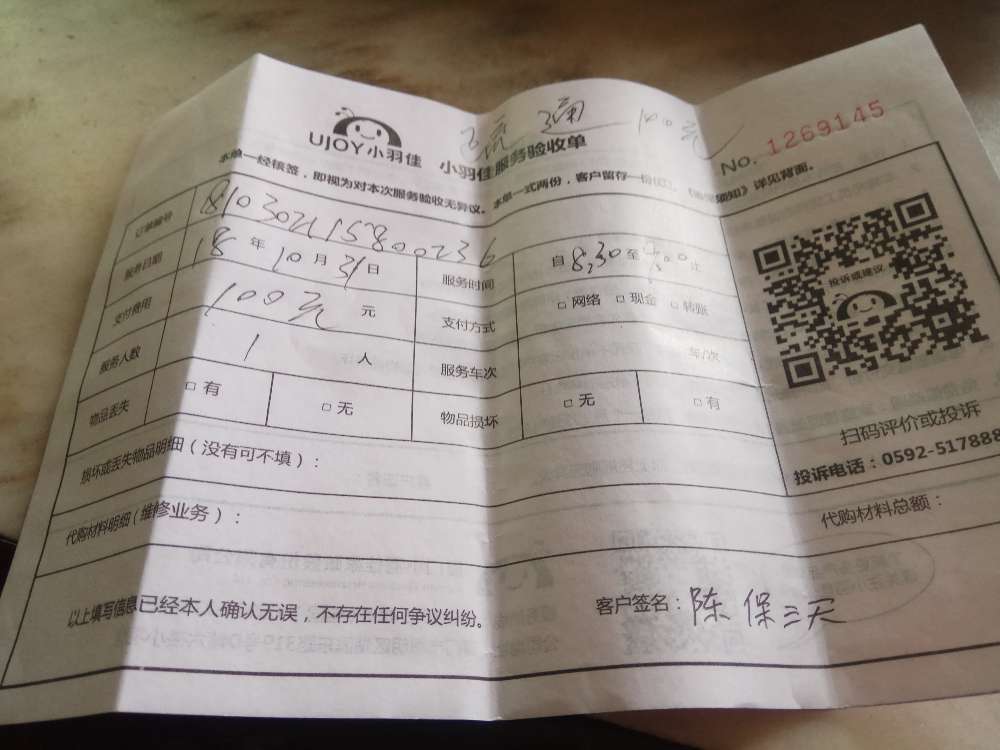 UJOY小羽佳 小羽佳服务验收单
通 100元
No. 1269145
本单一经核签，即视为对本次服务验收无异议。本单一式两份，客户留存一份，详见背面。
订单编号 81030211580236
服务日期 18年10月31日 服务时间 自8:30至 止
支付费用 100元 元 支付方式 □网络 □现金 □转账
服务人数 1 人 服务车次 车/次
物品丢失 □有 □无 物品损坏 □无 □有
损坏或丢失物品明细（没有可不填）：
代购材料明细（维修业务）：
代购材料总额：
以上填写信息已经本人确认无误，不存在任何争议纠纷。
客户签名：陈保三天
投诉或建议
扫码评价或投诉
投诉电话：0592-517888